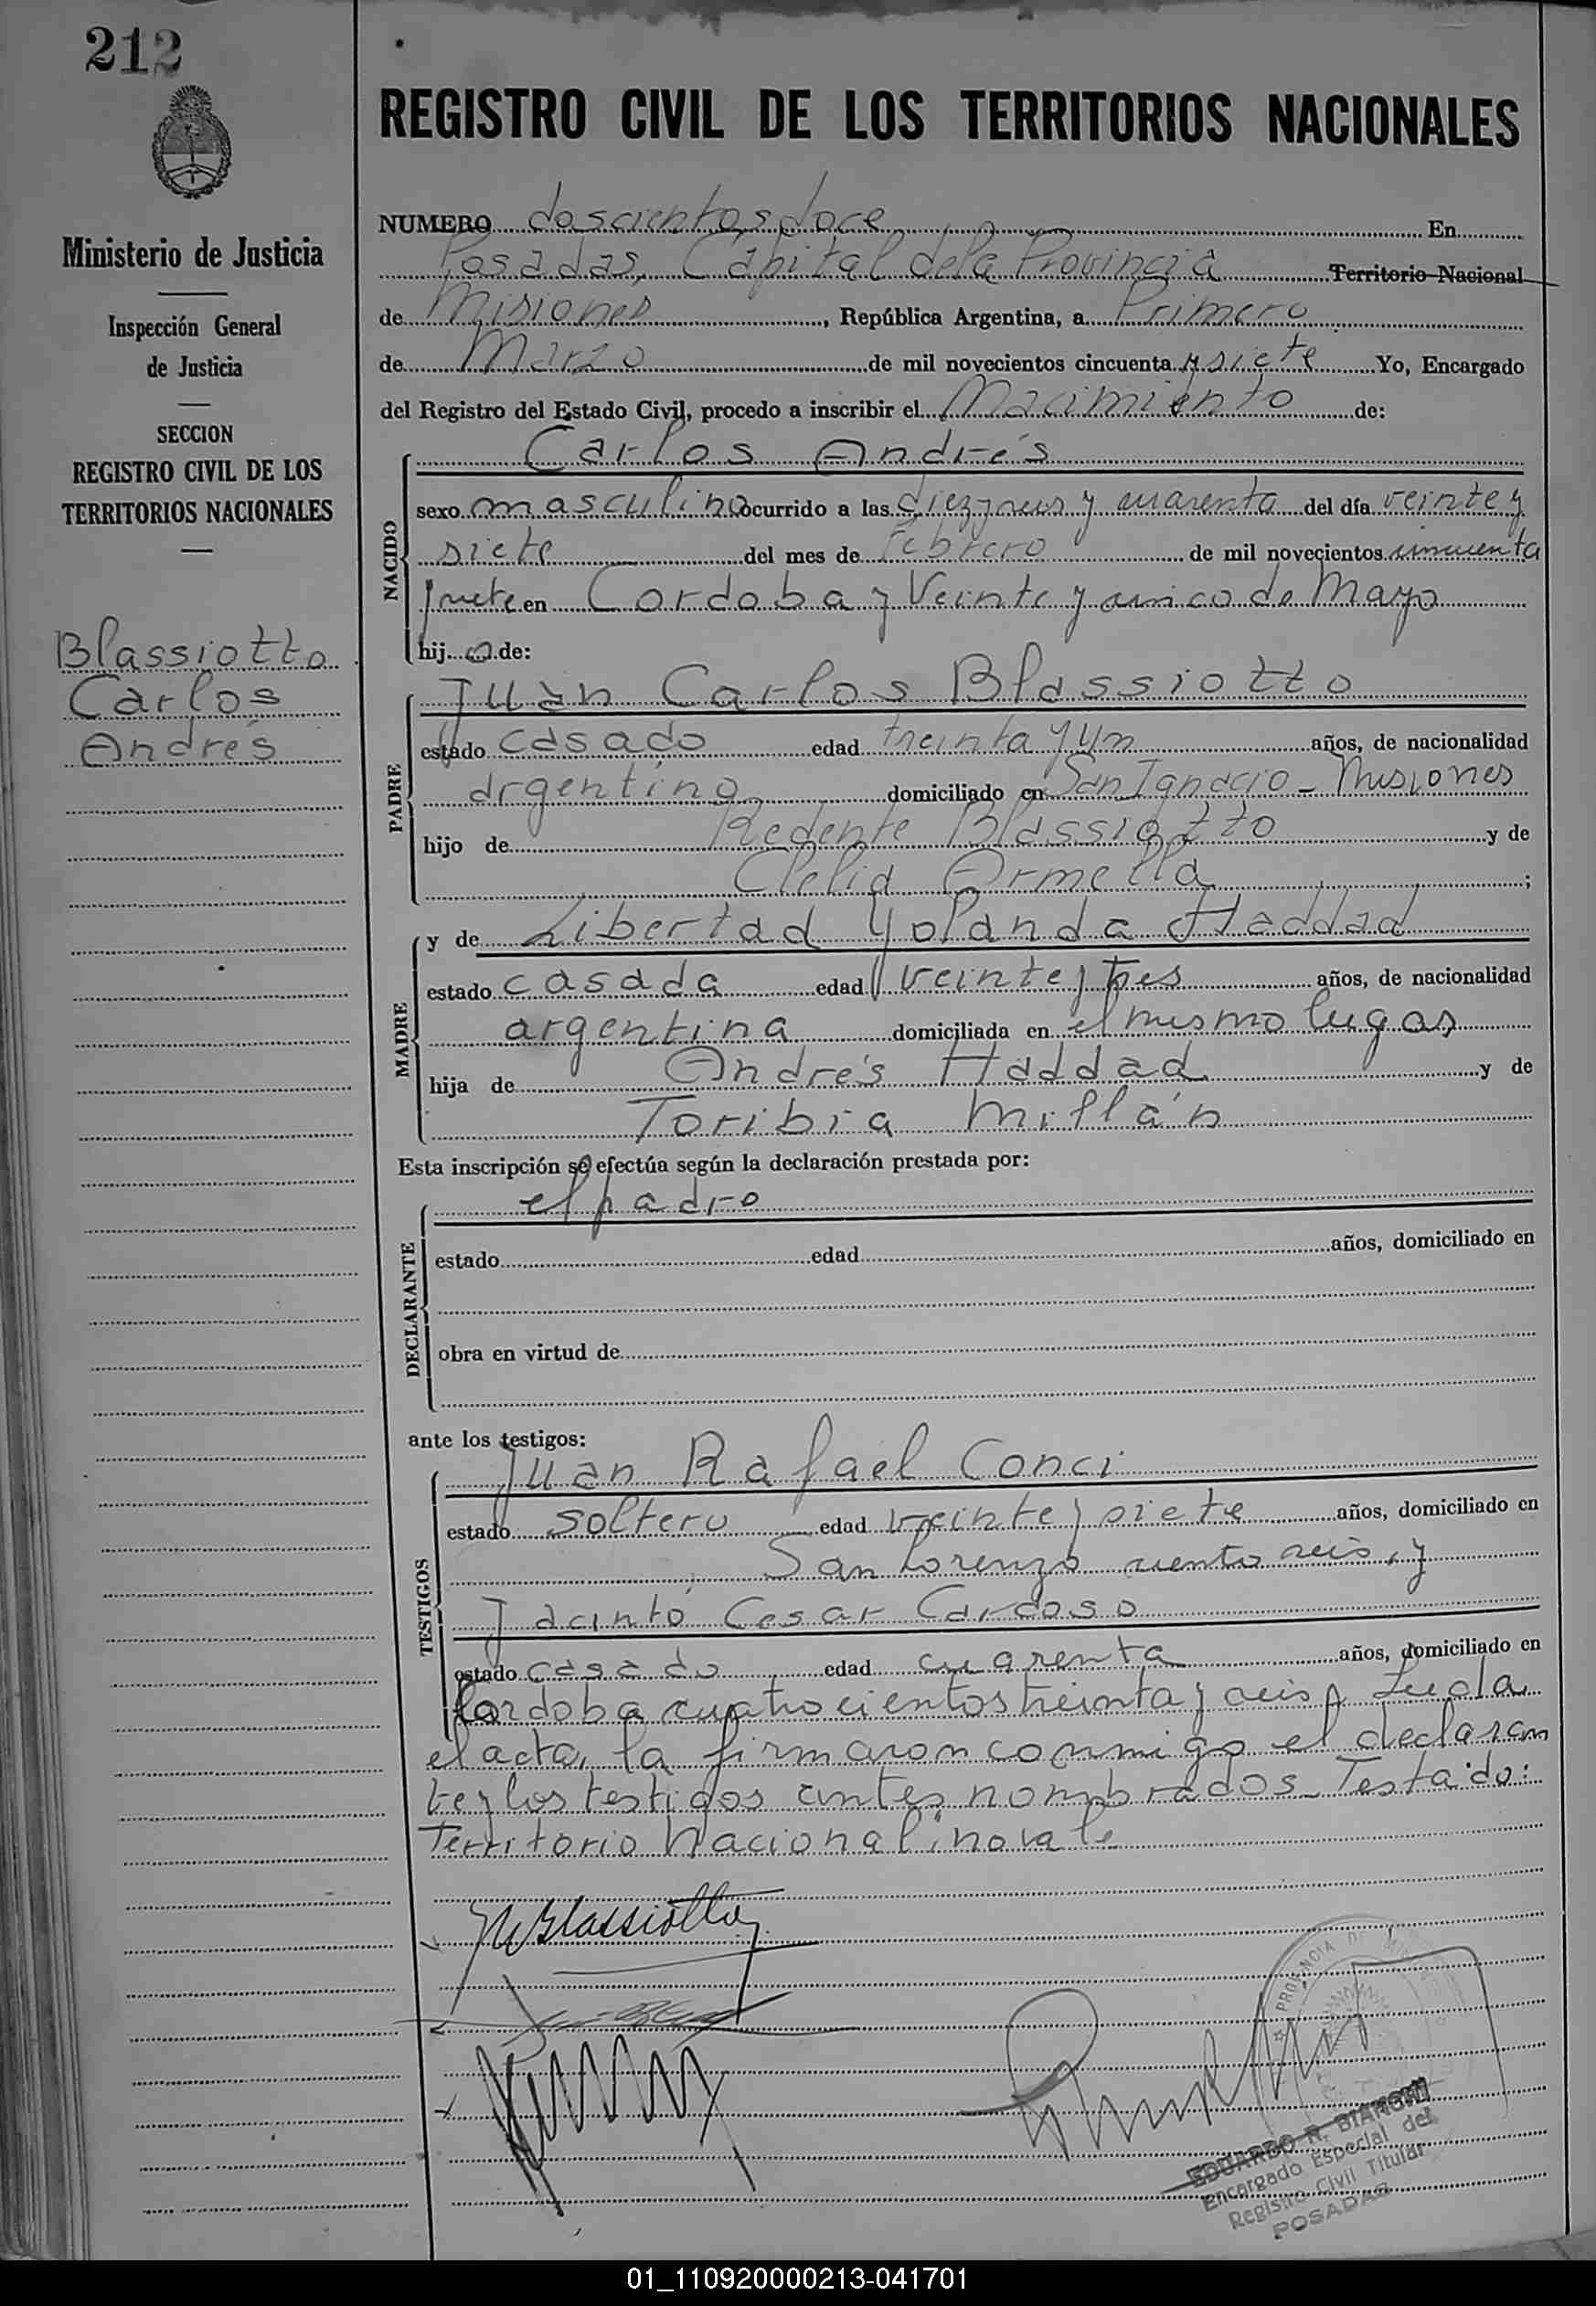 212
REGISTRO CIVIL DE LOS TERRITORIOS NACIONALES
Ministerio de Justicia
Inspección General
de Justicia
SECCION
REGISTRO CIVIL DE LOS
TERRITORIOS NACIONALES
Blassiotto
Carlos
Andrés
NUMERO doscientos doce En
Posadas, Capital de la Provincia Territorio Nacional
de Misiones, República Argentina, a Primero
de Marzo de mil novecientos cincuenta y siete Yo, Encargado
del Registro del Estado Civil, procedo a inscribir el Nacimiento de:
NACIDO
Carlos Andrés
sexo masculino ocurrido a las diez y seis y cuarenta del día veinte y
siete del mes de febrero de mil novecientos cincuenta
y siete en Cordoba y Veinte y cinco de Mayo
hijo de:
PADRE
Juan Carlos Blassiotto
estado casado edad treinta y un años, de nacionalidad
argentino domiciliado en San Ignacio - Misiones
hijo de Redente Blassiotto y de
Clelia Ormella;
MADRE
y de Libertad Yolanda Haddad
estado casada edad veinte y tres años, de nacionalidad
argentina domiciliada en el mismo lugar
hija de Andrés Haddad y de
Toribia Millán
Esta inscripción se efectúa según la declaración prestada por:
DECLARANTE
el padre
estado edad años, domiciliado en
obra en virtud de
ante los testigos:
TESTIGOS
Juan Rafael Conci
estado soltero edad veinte y siete años, domiciliado en
San Lorenzo ciento seis, y
Jacinto Cesar Cardoso
estado casado edad cuarenta años, domiciliado en
Cordoba cuatrocientos treinta y seis Leida
el acta, la firmaron conmigo el declaran
te y los testigos antes nombrados - Testado:
Territorio Nacional: no vale
Blassiotto
PROVINCIA DE
EDUARDO R. BIANCHI
Encargado Especial del
Registro Civil Titular
POSADAS
01_110920000213-041701